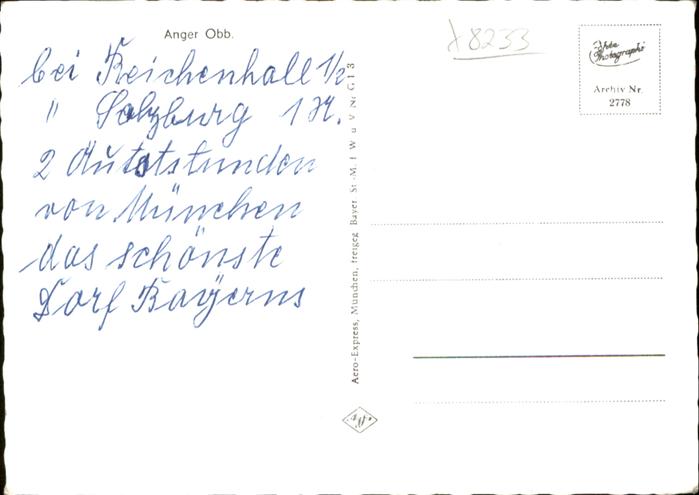 Anger Obb.
bei Reichenhall 1/2
" Salzburg 1 St.
2 Autostunden
von München
das schönste
Dorf Bayerns
x 8233
Echte Photographie
Archiv Nr.
2778
Aero-Express, München, freigeg. Bayer. St.-M. f. W. u. V. Nr. G 13